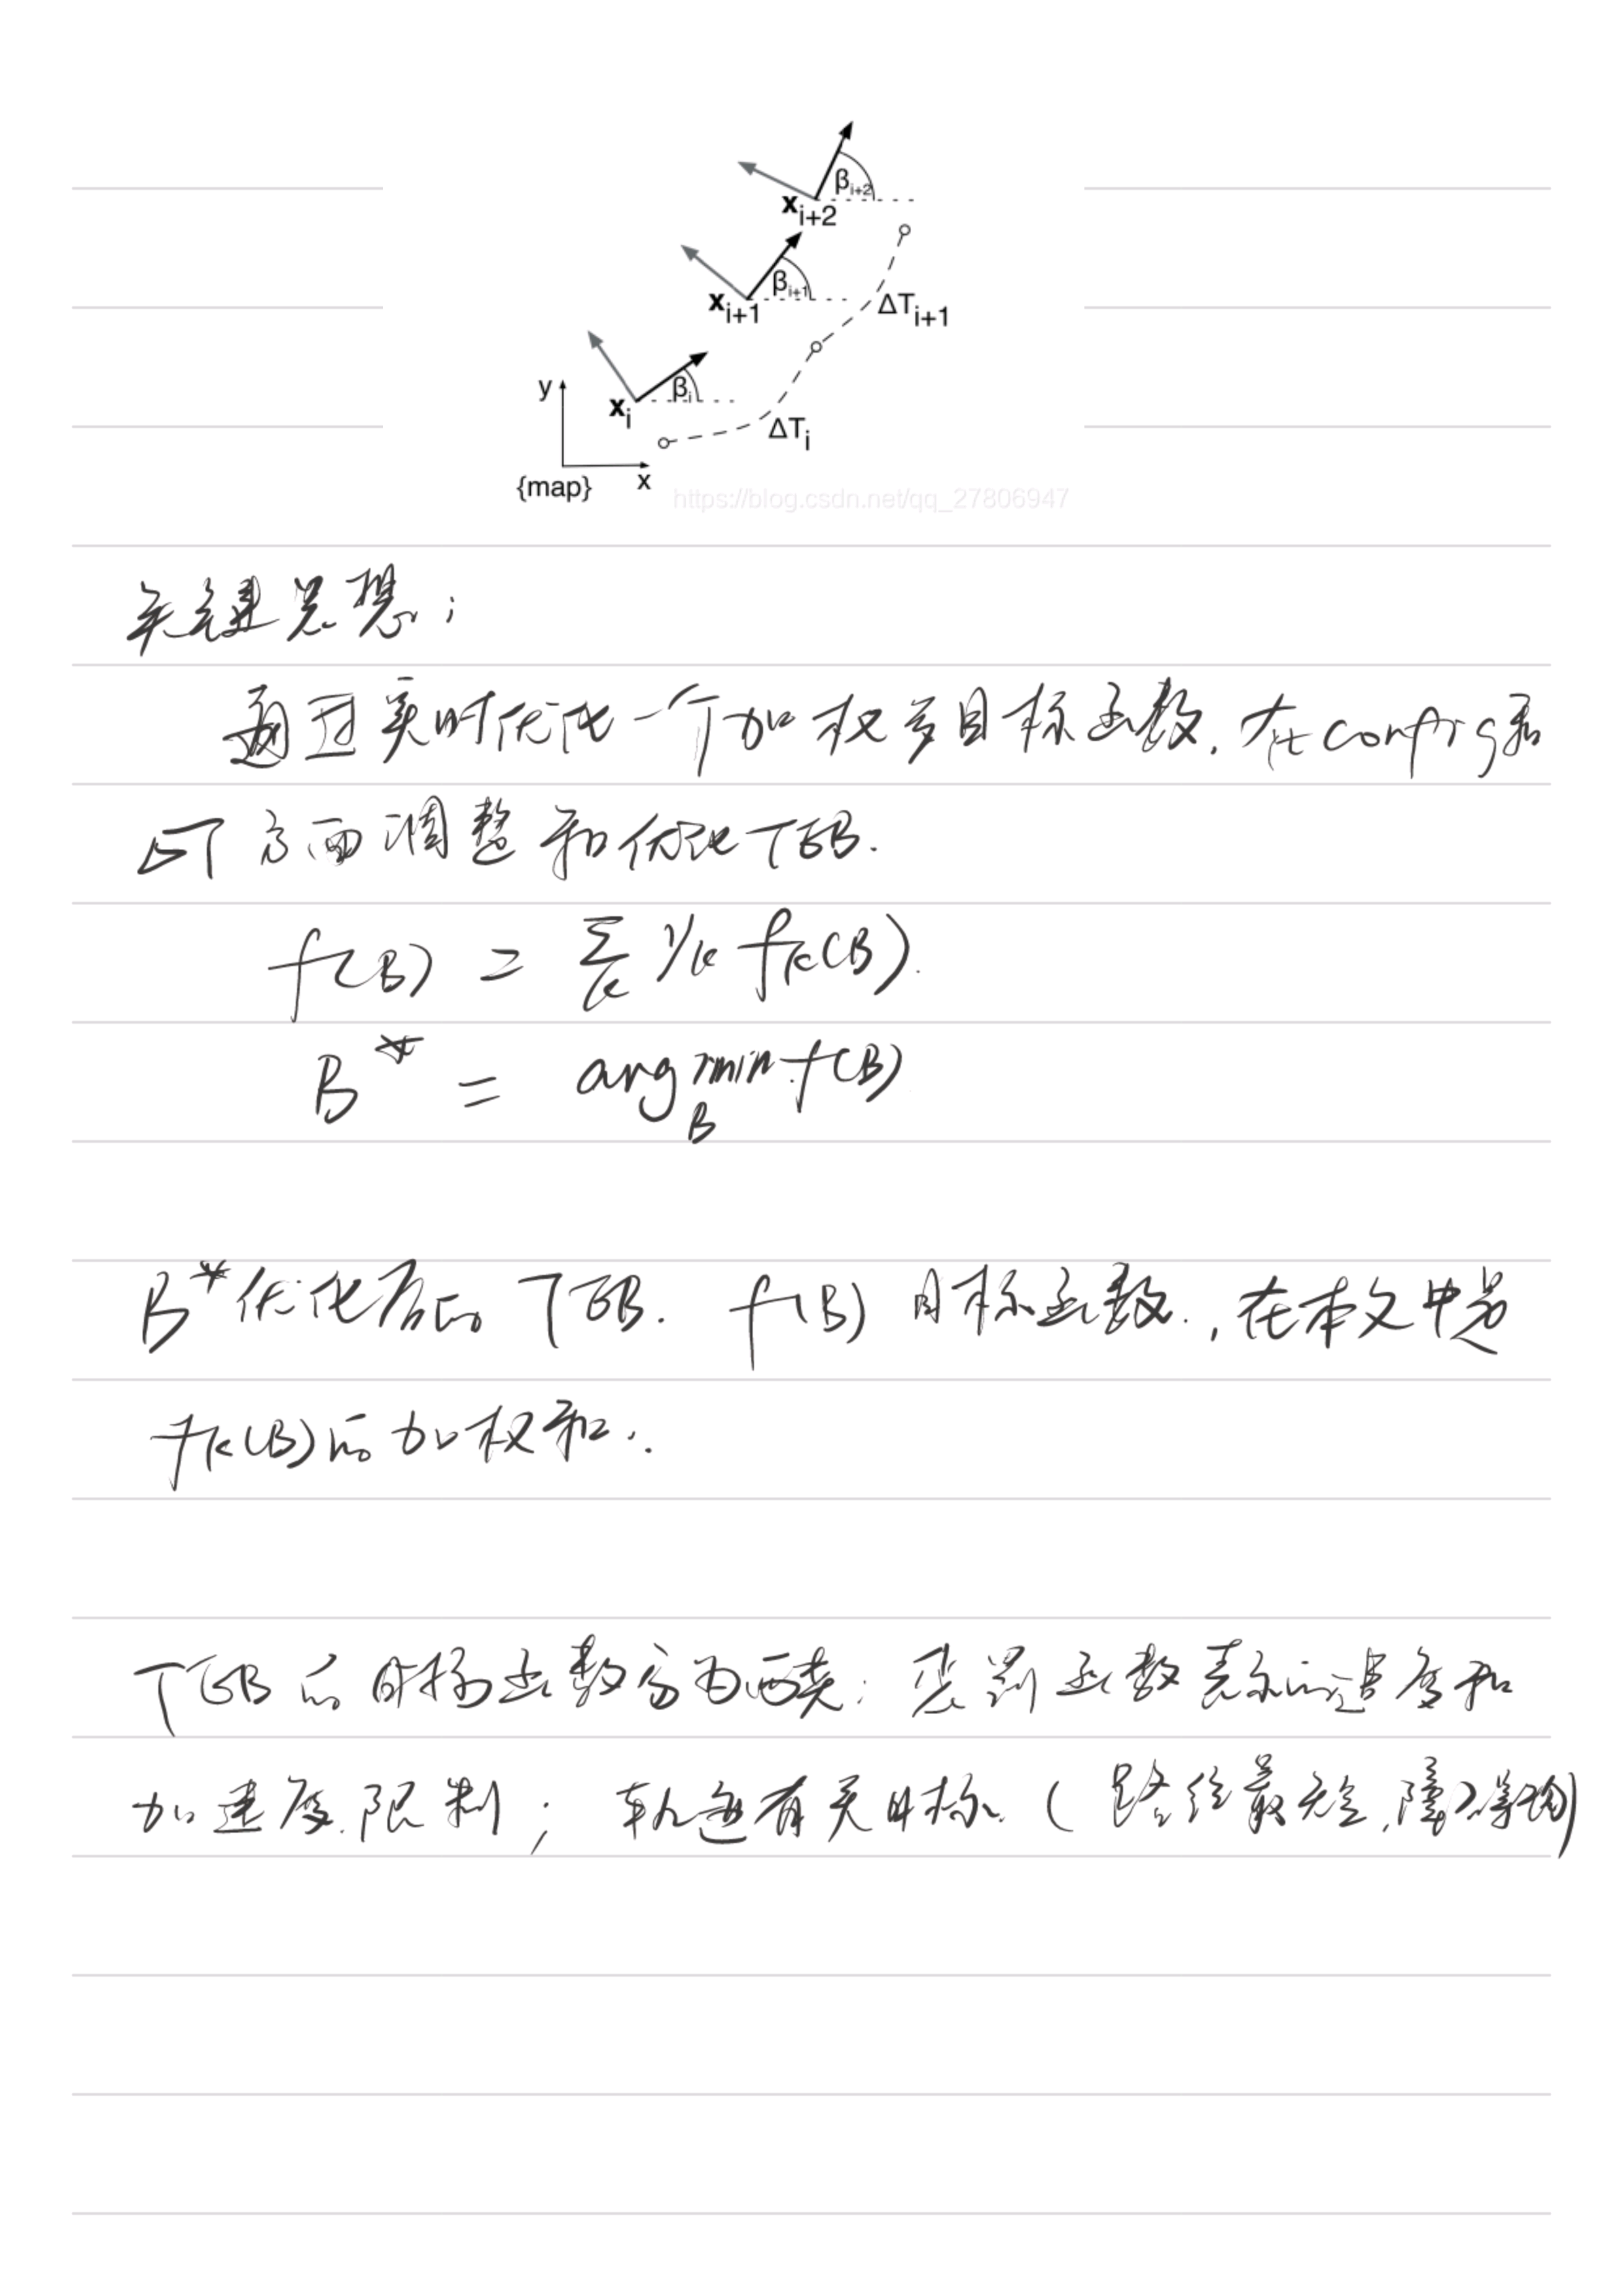 β_{i+2}
x_{i+2}
β_{i+1}
x_{i+1}
ΔT_{i+1}
y
β_i
x_i
ΔT_i
{map}
x
https://blog.csdn.net/qq_27806947
关键思想：
通过实时优化一个加权多目标函数，在config和
ΔT方面调整和优化TEB.
f(B) = Σ_k γ_k f_k(B).
B* = arg min_B f(B)
B*优化后的 TEB. f(B) 目标函数.，在本文中为
f_k(B)的加权和..
TEB的目标函数分为两类：惩罚函数表示的速度和
加速度限制；轨迹有关目标（路径最短，障碍物）